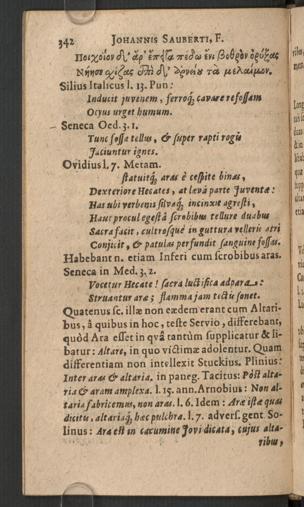 342 JOHANNIS SAUBERTI, F.
Ποιχοῖον δ' ἂρ ἔπειτα πέδῳ ἔνι βόθρον ὀρύξας
Νήησα σχίζας ἐπὶ δ'
Silius Italicus l. 13. Pun:
Inducit juvenem, ferroq́; cavare refossam
Ocyus urget humum.
Seneca Oed. 3. 1.
Tunc fossa tellus, & super rapti rogis
Jaciuntur ignes.
Ovidius l. 7. Metam.
statuitq́; aras è cespite binas,
Dexteriore Hecates, at levâ parte Juventæ:
Has ubi verbenis silvaq́; incinxit agresti,
Haut procul egestâ scrobibus tellure duabus
Sacra facit, cultrosque in guttura velleris atri
Conjicit, & patulas perfundit sanguine fossas.
Habebant n. etiam Inferi cum scrobibus aras.
Seneca in Med. 3. 2.
Vocetur Hecate! sacra luctifica adpara:
Struantur aræ; flamma jam tectis sonet.
Quatenus sc. illæ non eædem erant cum Altari-
bus, à quibus in hoc, teste Servio, differebant,
quòd Ara esset in quâ tantùm supplicatur & li-
batur: Altare, in quo victimæ adolentur. Quam
differentiam non intellexit Stuckius. Plinius:
Inter aras & altaria. in paneg. Tacitus: Pòst alta-
ria & aram amplexa. l. 15. ann. Arnobius: Non al-
taria fabricemus, non aras. l. 6. Idem: Aræ istæ quas
dicitis, altariaq́; hæc pulchra. l. 7. advers. gent. So-
linus: Ara est in cacumine Jovi dicata, cujus alta-
ribus,